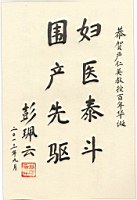 恭贺严仁英教授百年华诞
妇医泰斗
围产先驱
彭珮云
二〇一三年九月